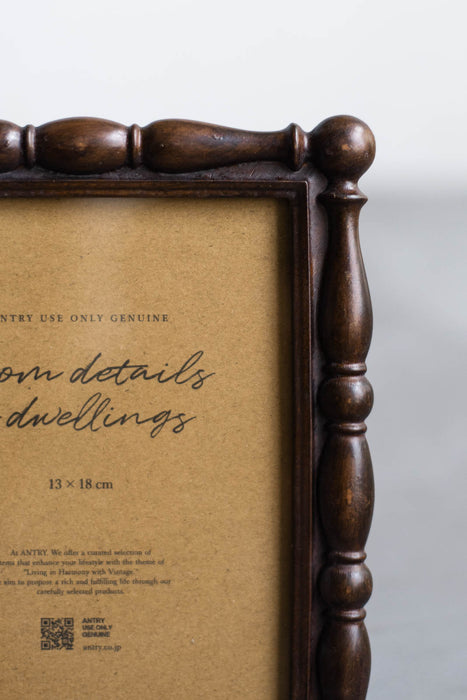 NTRY USE ONLY GENUINE
om details
dwellings
13 × 18 cm
At ANTRY. We offer a curated selection of
tems that enhance your lifestyle with the theme of
"Living in Harmony with Vintage."
aim to propose a rich and fulfilling life through our
carefully selected products.
ANTRY
USE ONLY
GENUINE
antry.co.jp